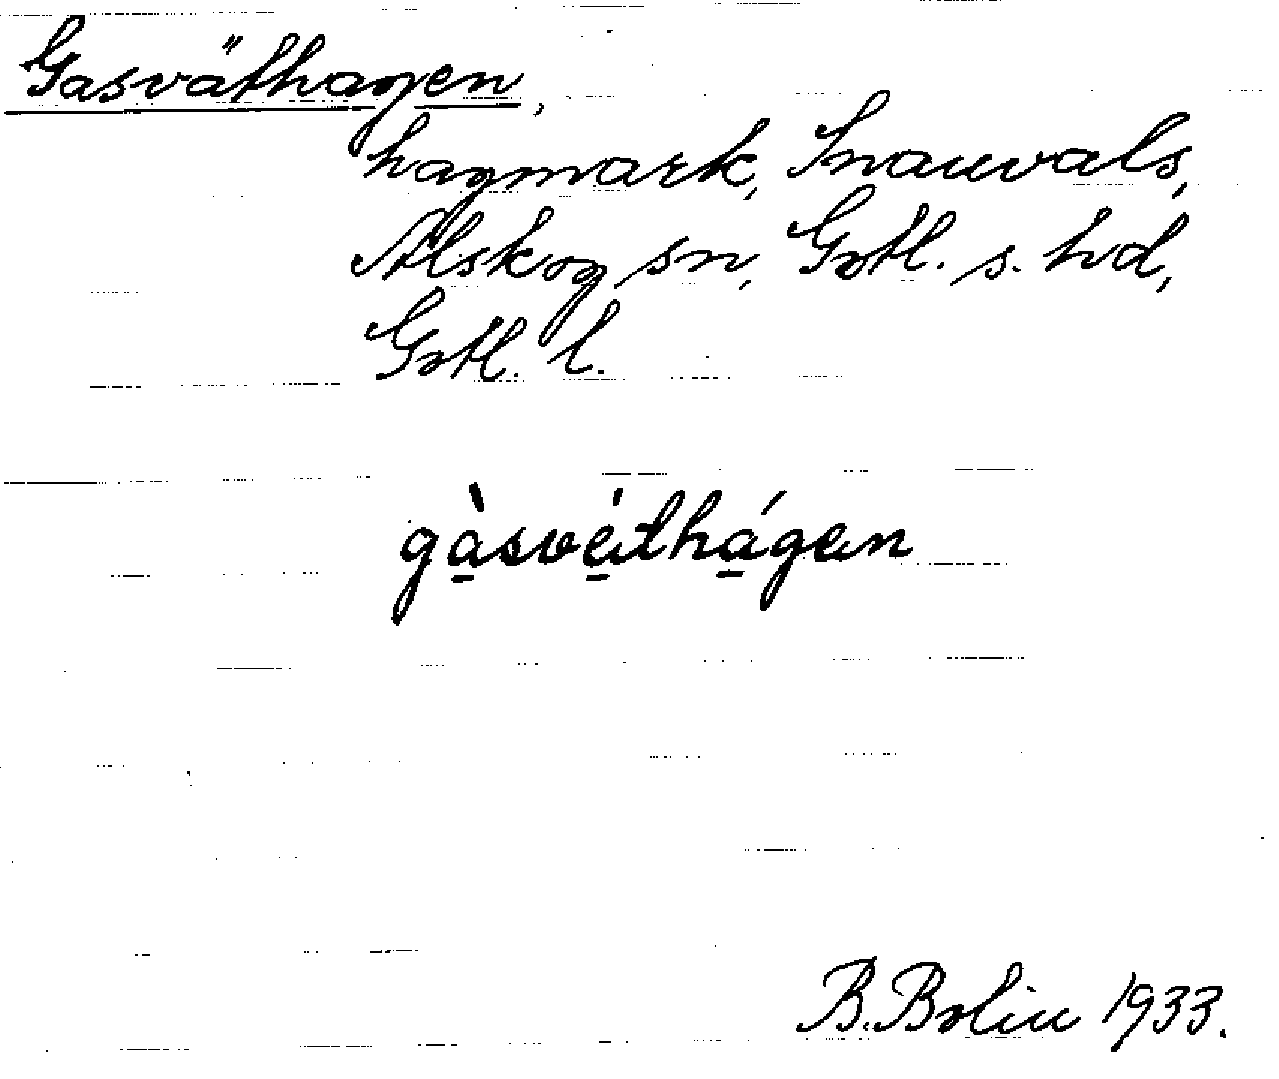 Gasväthagen,
hagmark, Snauvals,
Alskog sn, Gotl. s. hd,
Gotl. l.
gàsvéithágen
B. Bolin 1933.